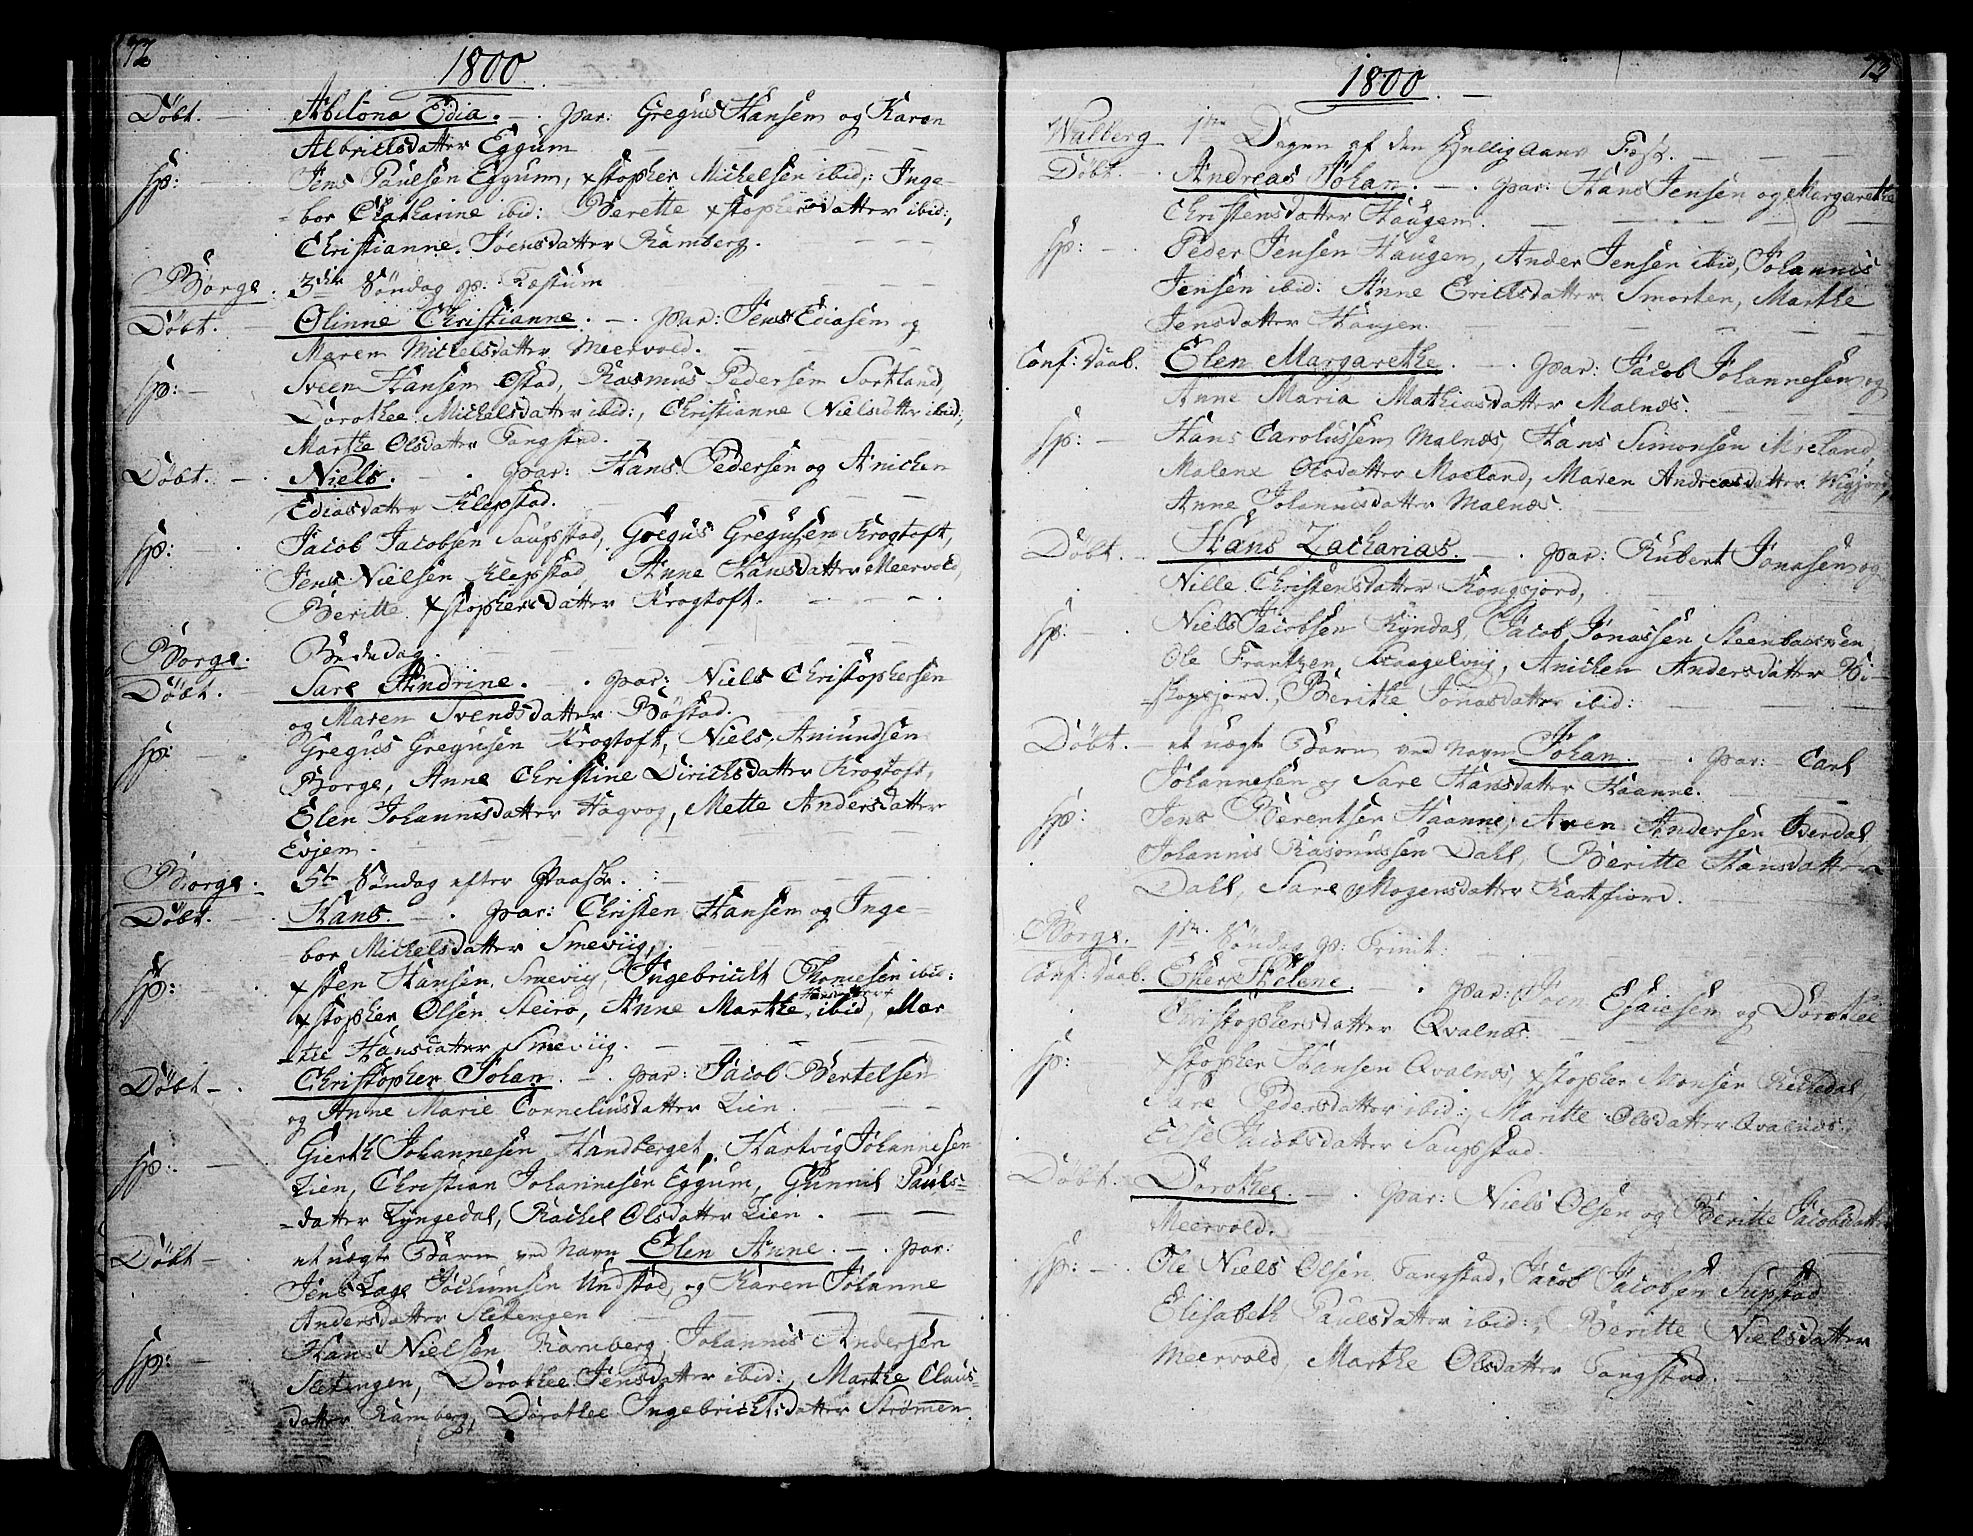 72
1800
Döbt. Abelona Edia. par: Gregus Hansen og Karen
Albricksdatter Eggum
Sp: Jens Paulsen Eggum, xstopher Michelsen ibid,: Inge-
-bor Chatharine ibid: Berette xstophersdatter ibid:,
Christianne Joensdatter Ramberg.
Borge. 3die Söndag p: Festum
Döbt. Olinne Christianne. par: Jens Ediasen og
Maren Michelsdatter Meervold.
Sp: Sveen Hansen Ostad, Rasmus Pedersen Sortland,
Dorothee Michelsdatter ibid:, Christianne Nielsdatter ibid:,
Marthe Olsdatter Tangstad.
Döbt. Niels. par: Hans Pedersen og Anichen
Ediasdatter Klepstad.
Sp: Jacob Jacobsen Saupstad, Gregus Gregusen Krogtoft,
Jens Nielsen Klepstad, Anne Hansdatter Meervold,
Beritte xstophersdatter Krogtoft.
Borge. Bededag.
Döbt. Sare Andrine. par: Niels Christophersen
og Maren Svendsdatter Böstad.
Sp: Gregus Gregusen Krogtoft, Niels Amundsen
Borge, Anne Christine Dirichsdatter Krogtoft,
Elen Johannisdatter Hagvog, Mette Andersdatter
Evjen.
Borge. 5te Söndag efter Paaske.
Döbt. Hans. par: Christen Hansen og Inge-
-bor Michelsdatter Smeviig,
Sp: xsten Hansen Smeviig, Ingebricht Thomesen ibid:
xstopher Olsen Steiro, Anne Marthe Hansdatter ibid, Mar
-the Hansdatter Smeviig.
Döbt Christopher Johan. par: Jacob Bertelsen
og Anne Marie Corneliusdatter Lien.
Sp: Gierth Johannesen Handberget, Hartvig Johannesen
Lien, Christian Johannesen Eggum, Gunnil Pauls-
-datter Lyngedal, Rachel Olsdatter Lien.
Döbt et uægte Barn ved Navn Elen Anne. par:
Jens Lage Jochumsen Unstad, og Karen Johanne
Andersdatter Sletengen
Sp: Hans Nielsen Ramberg, Johannis Andersen
Sletengen, Dorothee Jensdatter ibid:, Marthe Claus-
datter Ramberg, Dorothee Ingebrichtsdatter Strömen.
73
1800.
Walberg 1ste Dagen af den Hellig Aans Fest.
Döbt. Andreas Johan. par: Hans Jensen og Margarethe
Christensdatter Haugen.
Sp: Peder Jensen Haugen, Ander Jensen ibid, Johannis
Jensen ibid: Anne Erichsdatter Smorten, Marthe
Jensdatter Haugen.
Conf: Daab. Elen Margarethe. par: Jacob Johannesen og
Anne Maria Mathiasdatter Malnæs.
Sp: Hans Carolussen Malnæs, Hans Simonsen Moeland,
Malene Olsdatter Moeland, Maren Andreasdatter
Anne Johannisdatter Malnæs.
Döbt. Hans Zacharias. par: Rubert Jonasen og
Nille Christensdatter Kongsjord,
Sp: Niels Jacobsen Ryndal, Jacob Jonassen Steenbacken
Ole Frantzen Skagelviig, Anichen Andersdatter Bi-
-skopsjord, Berithe Jonasdatter ibid:
Döbt. et uægte Barn ved Navn Johan. par: Carl
Johannesen og Sare Hansdatter Haanne.
Sp: Jens Berentsen Haanne, Aren Andersen Berdal
Johannis Rasmussen Dahl, Beritte Hansdatter
Dahl, Sare Mogensdatter Kartfiord.
Borge. 1ste Söndag p: Trinit:
Conf: Daab. Ester Helene. par: Joen Esaiesen og Dorothee
Christophersdatter Qvalnæs.
Sp: xstopher Hansen Qvalnæs, xstopher Monsen Rechedal,
Sare Pedersdatter ibid:, Maritte Olsdatter Qvalnæs,
Else Jacobsdatter Saupstad.
Döbt. Dorothee. par: Niels Olsen og Beritte Jacobsdatter
Meervold.
Sp: Ole Niels Olsen Tangstad, Jacob Jacobsen Supstad
Elisabeth Paulsdatter ibid:, Beritte Nielsdatter
Meervold, Marthe Olsdatter Tangstad.